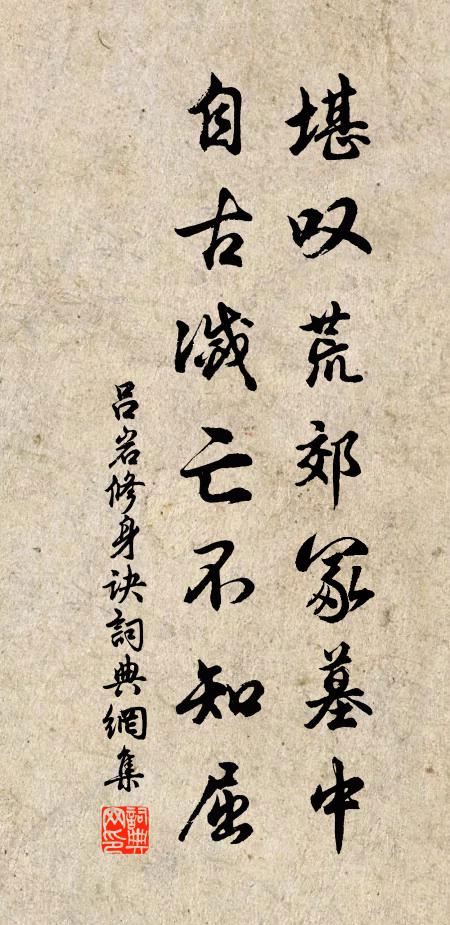 堪叹荒郊冢墓中
自古滅亡不知屈
吕岩修身诀詞典網集
詞典网印